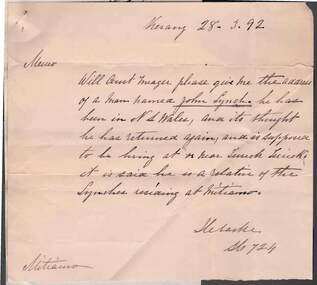 Kerang 28-3.92
Memo
Will Const please give me the address
of a man named John Lynch. he has
been in N S Wales, and its thought
he has returned again, and is supposed
to be living at or near Terrick Terrick.
it is said he is a relative of the
Lynches residing at Mitiamo.
724
Mitiamo